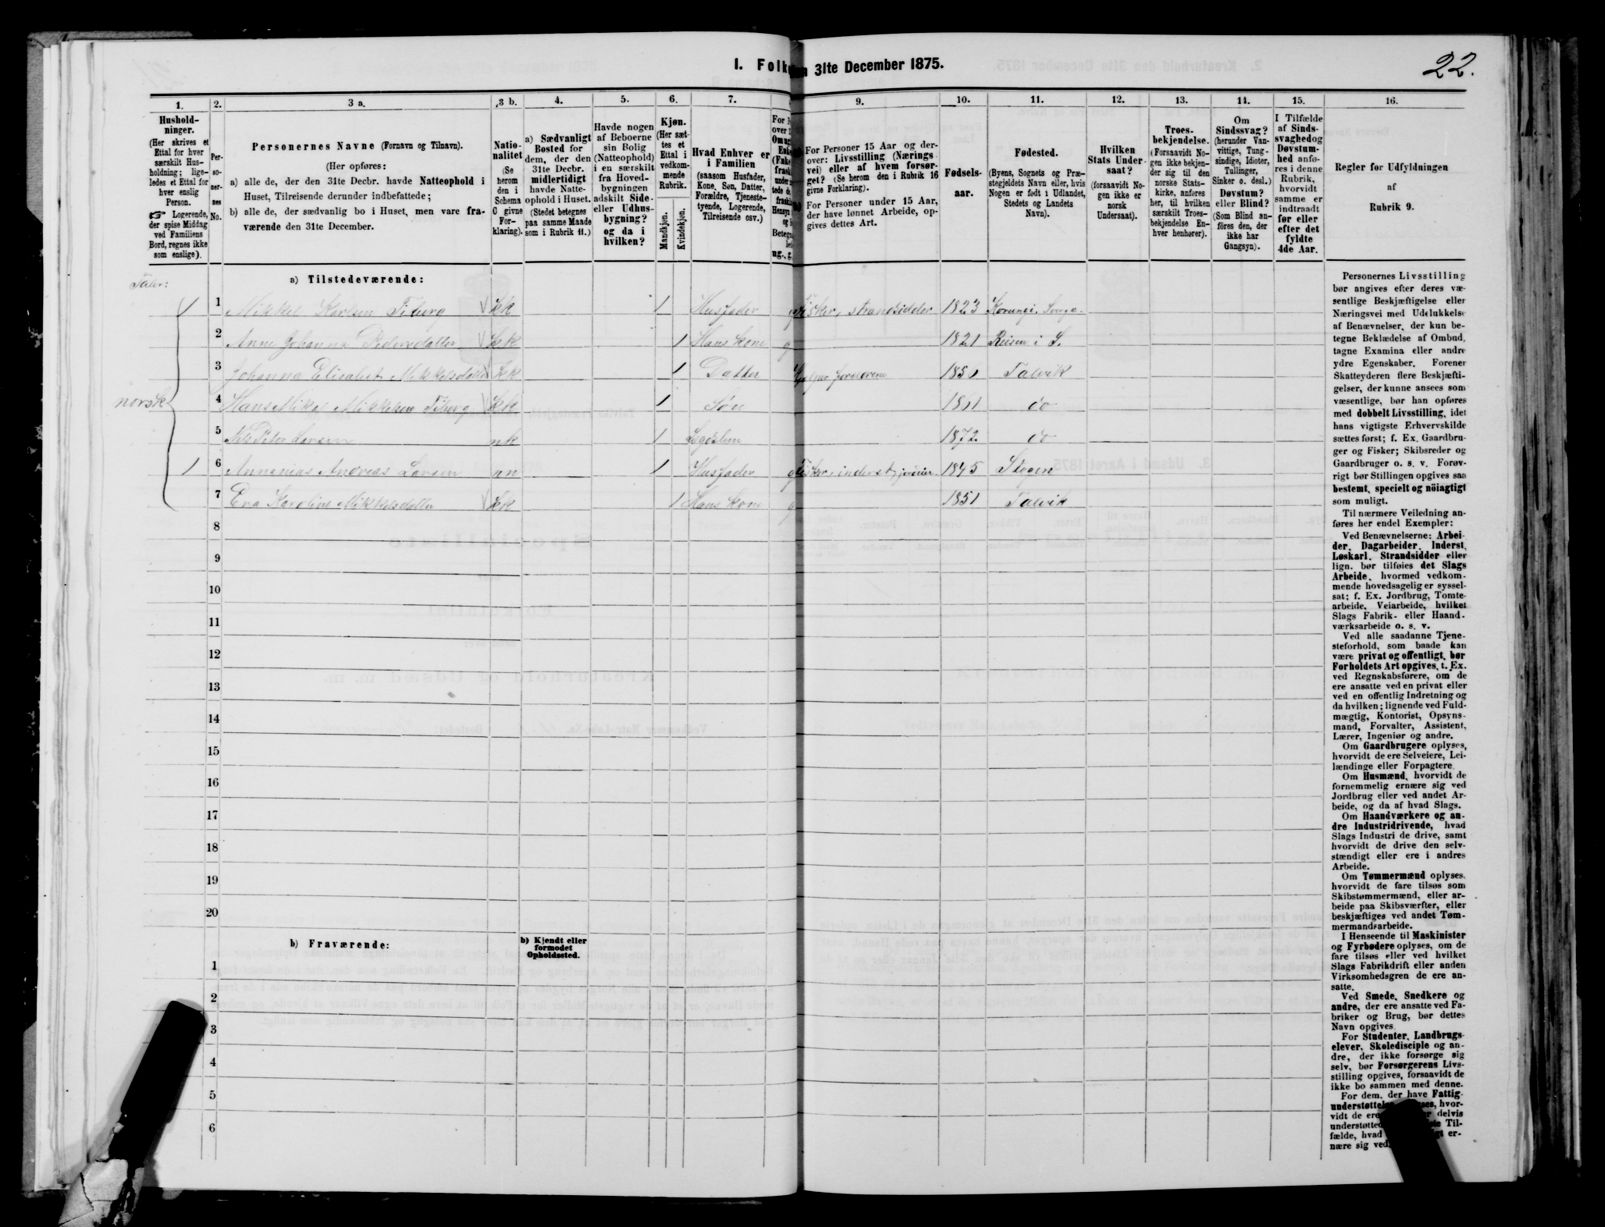 22.
I. Folk
31te December 1875.
1.
2.
3 a.
3 b.
4.
5.
6.
7.
9.
10.
11.
12.
13.
14.
15.
16.
Hushold-
ninger.
(Her skrives et
Ettal for hver
særskilt Hus-
holdning; lige-
ledes et Ettal for
hver enslig
Person.
Logerende,
der spise Middag
ved Familiens
Bord, regnes ikke
som enslige).
Per-
so-
ner-
nes
No.
Personernes Navne (Fornavn og Tilnavn).
(Her opføres:
a) alle de, der den 31te Decbr. havde Natteophold i
Huset, Tilreisende derunder indbefattede;
b) alle de, der sædvanlig bo i Huset, men vare fra-
værende den 31te December.
Natio-
nalitet
(Se
herom
den i
Schema
C givne
For-
klaring).
a) Sædvanligt
Bosted for
dem, der den
31te Decbr.
midlertidigt
havde Natte-
ophold i Huset.
(Stedet betegnes
paa samme Maade
som i Rubrik 11.)
Havde nogen
af Beboerne
sin Bolig
(Natteophold)
i en særskilt
fra Hoved-
bygningen
adskilt Side-
eller Udhus-
bygning?
og da i
hvilken?
Kjøn.
(Her sæt-
tes et
Ettal i
vedkom-
mende
Rubrik.
Mandkjøn.
Kvindekjøn.
Hvad Enhver er
i Familien
(saasom Husfader,
Kone, Søn, Datter,
Forældre, Tjeneste-
tyende, Logerende,
Tilreisende osv.)
For Personer 15 Aar og der-
over: Livsstilling (Nærings-
vei) eller af hvem forsør-
get? (Se herom den i Rubrik 16
givne Forklaring).
For Personer under 15 Aar,
der have lønnet Arbeide, op-
gives dettes Art.
Fødsels-
aar.
Fødested.
(Byens, Sognets og Præ-
stegjeldets Navn eller, hvis
Nogen er født i Udlandet,
Stedets og Landets
Navn).
Hvilken
Stats Under-
saat?
(forsaavidt No-
gen ikke er
norsk
Undersaat).
Troes-
bekjendelse.
(Forsaavidt No-
gen ikke bekjen-
der sig til den
norske Stats-
kirke, anføres
her, til hvilken
særskilt Troes-
bekjendelse En-
hver henhører).
Om
Sindssvag?
(herunder Van-
vittige, Tung-
sindige, Idioter,
Tullinger,
Sinker o. desl.)
Døvstum?
eller Blind?
(Som Blind an-
føres den, der
ikke har
Gangsyn).
I Tilfælde
af Sinds-
svaghed og
Døvstum-
hed anfø-
res i denne
Rubrik,
hvorvidt
samme er
indtraadt
før eller
efter det
fyldte
4de Aar.
Regler før Udfyldningen
af
Rubrik 9.
a) Tilstedeværende:
Taler:
norsk
1 1 Mikkel Karlsen Fiberg kk 1 Husfader g Fisker, strandsidder 1823
2 Anne Johanna Pedersdatter kk 1 Hans Kone g 1821 Reisen i S.
3 Johanna Elisabet Mikkelsdatter kk 1 Datter 1851 Talvik
4 Hans Mikal Mikkelsen Fiberg kk 1 Søn do
5 Nils Peter Larsen nk 1 Legdslem 1872 do
1 6 Annanias Andreas Larsen nn 1 Husfader g Fisker, inderst 1845
7 Eva Karoline Mikkelsdatter kk 1 Hans Kone g 1851 Talvik
8
9
10
11
12
13
14
15
16
17
18
19
20
b) Fraværende:
b) Kjendt eller
formodet
Opholdssted.
1
2
3
4
5
6
Personernes Livsstilling
bør angives efter deres væ-
sentlige Beskjæftigelse eller
Næringsvei med Udelukkelse
af Benævnelser, der kun be-
tegne Beklædelse af Ombud,
tagne Examina eller andre
ydre Egenskaber. Forener
Skatteyderen flere Beskjæfti-
gelser, der kunne ansees som
væsentlige, bør han opføres
med dobbelt Livsstilling, idet
hans vigtigste Erhvervskilde
sættes først; f. Ex. Gaardbru-
ger og Fisker; Skibsreder og
Gaardbruger o. s. v. Forøv-
rigt bør Stillingen opgives saa
bestemt, specielt og nøiagtigt
som muligt.
Til nærmere Veiledning an-
føres her endel Exempler:
Ved Benævnelserne: Arbei-
der, Dagarbeider, Inderst,
Løskarl, Strandsidder eller
lign. bør tilføies det Slags
Arbeide, hvormed vedkom-
mende hovedsagelig er syssel-
sat; f. Ex. Jordbrug, Tomte-
arbeide, Veiarbeide, hvilket
Slags Fabrik- eller Haand-
værksarbeide o. s. v.
Ved alle saadanne Tjene-
steforhold, som baade kan
være privat og offentligt, bør
Forholdets Art opgives, t. Ex.
ved Regnskabsførere, om de
ere ansatte ved en privat eller
ved en offentlig Indretning og
da hvilken; lignende ved Fuld-
mægtig, Kontorist, Opsyns-
mand, Forvalter, Assistent,
Lærer, Ingeniør og andre.
Om Gaardbrugere oplyses,
hvorvidt de ere Selveiere, Lei-
lændinge eller Forpagtere.
Om Husmænd, hvorvidt de
fornemmelig ernære sig ved
Jordbrug eller ved andet Ar-
beide, og da af hvad Slags.
Om Haandværkere og an-
dre Industridrivende, hvad
Slags Industri de drive, samt
hvorvidt de drive den selv-
stændigt eller ere i andres
Arbeide.
Om Tømmermænd oplyses,
hvorvidt de fare tilsøs som
Skibstømmermænd, eller ar-
beide paa Skibsværfter, eller
beskjæftiges ved andet Tøm-
mermandsarbeide.
I Henseende til Maskinister
og Fyrbødere oplyses, om de
fare tilsøs eller ved hvilket
Slags Fabrikdrift eller anden
Virksomhedsgren de ere an-
satte.
Ved Smede, Snedkere og
andre, der ere ansatte ved Fa-
briker og Brug, bør dettes
Navn opgives.
For Studenter, Landbrugs-
elever, Skoledisciple og an-
dre, der ikke forsørge sig
selv, bør Forsørgerens Livs-
stilling opgives, forsaavidt de
ikke bo sammen med denne.
For dem, der have Fattig-
hvor-
vidt de delvis
Til-
fælde, hvad er-
nære sig ved